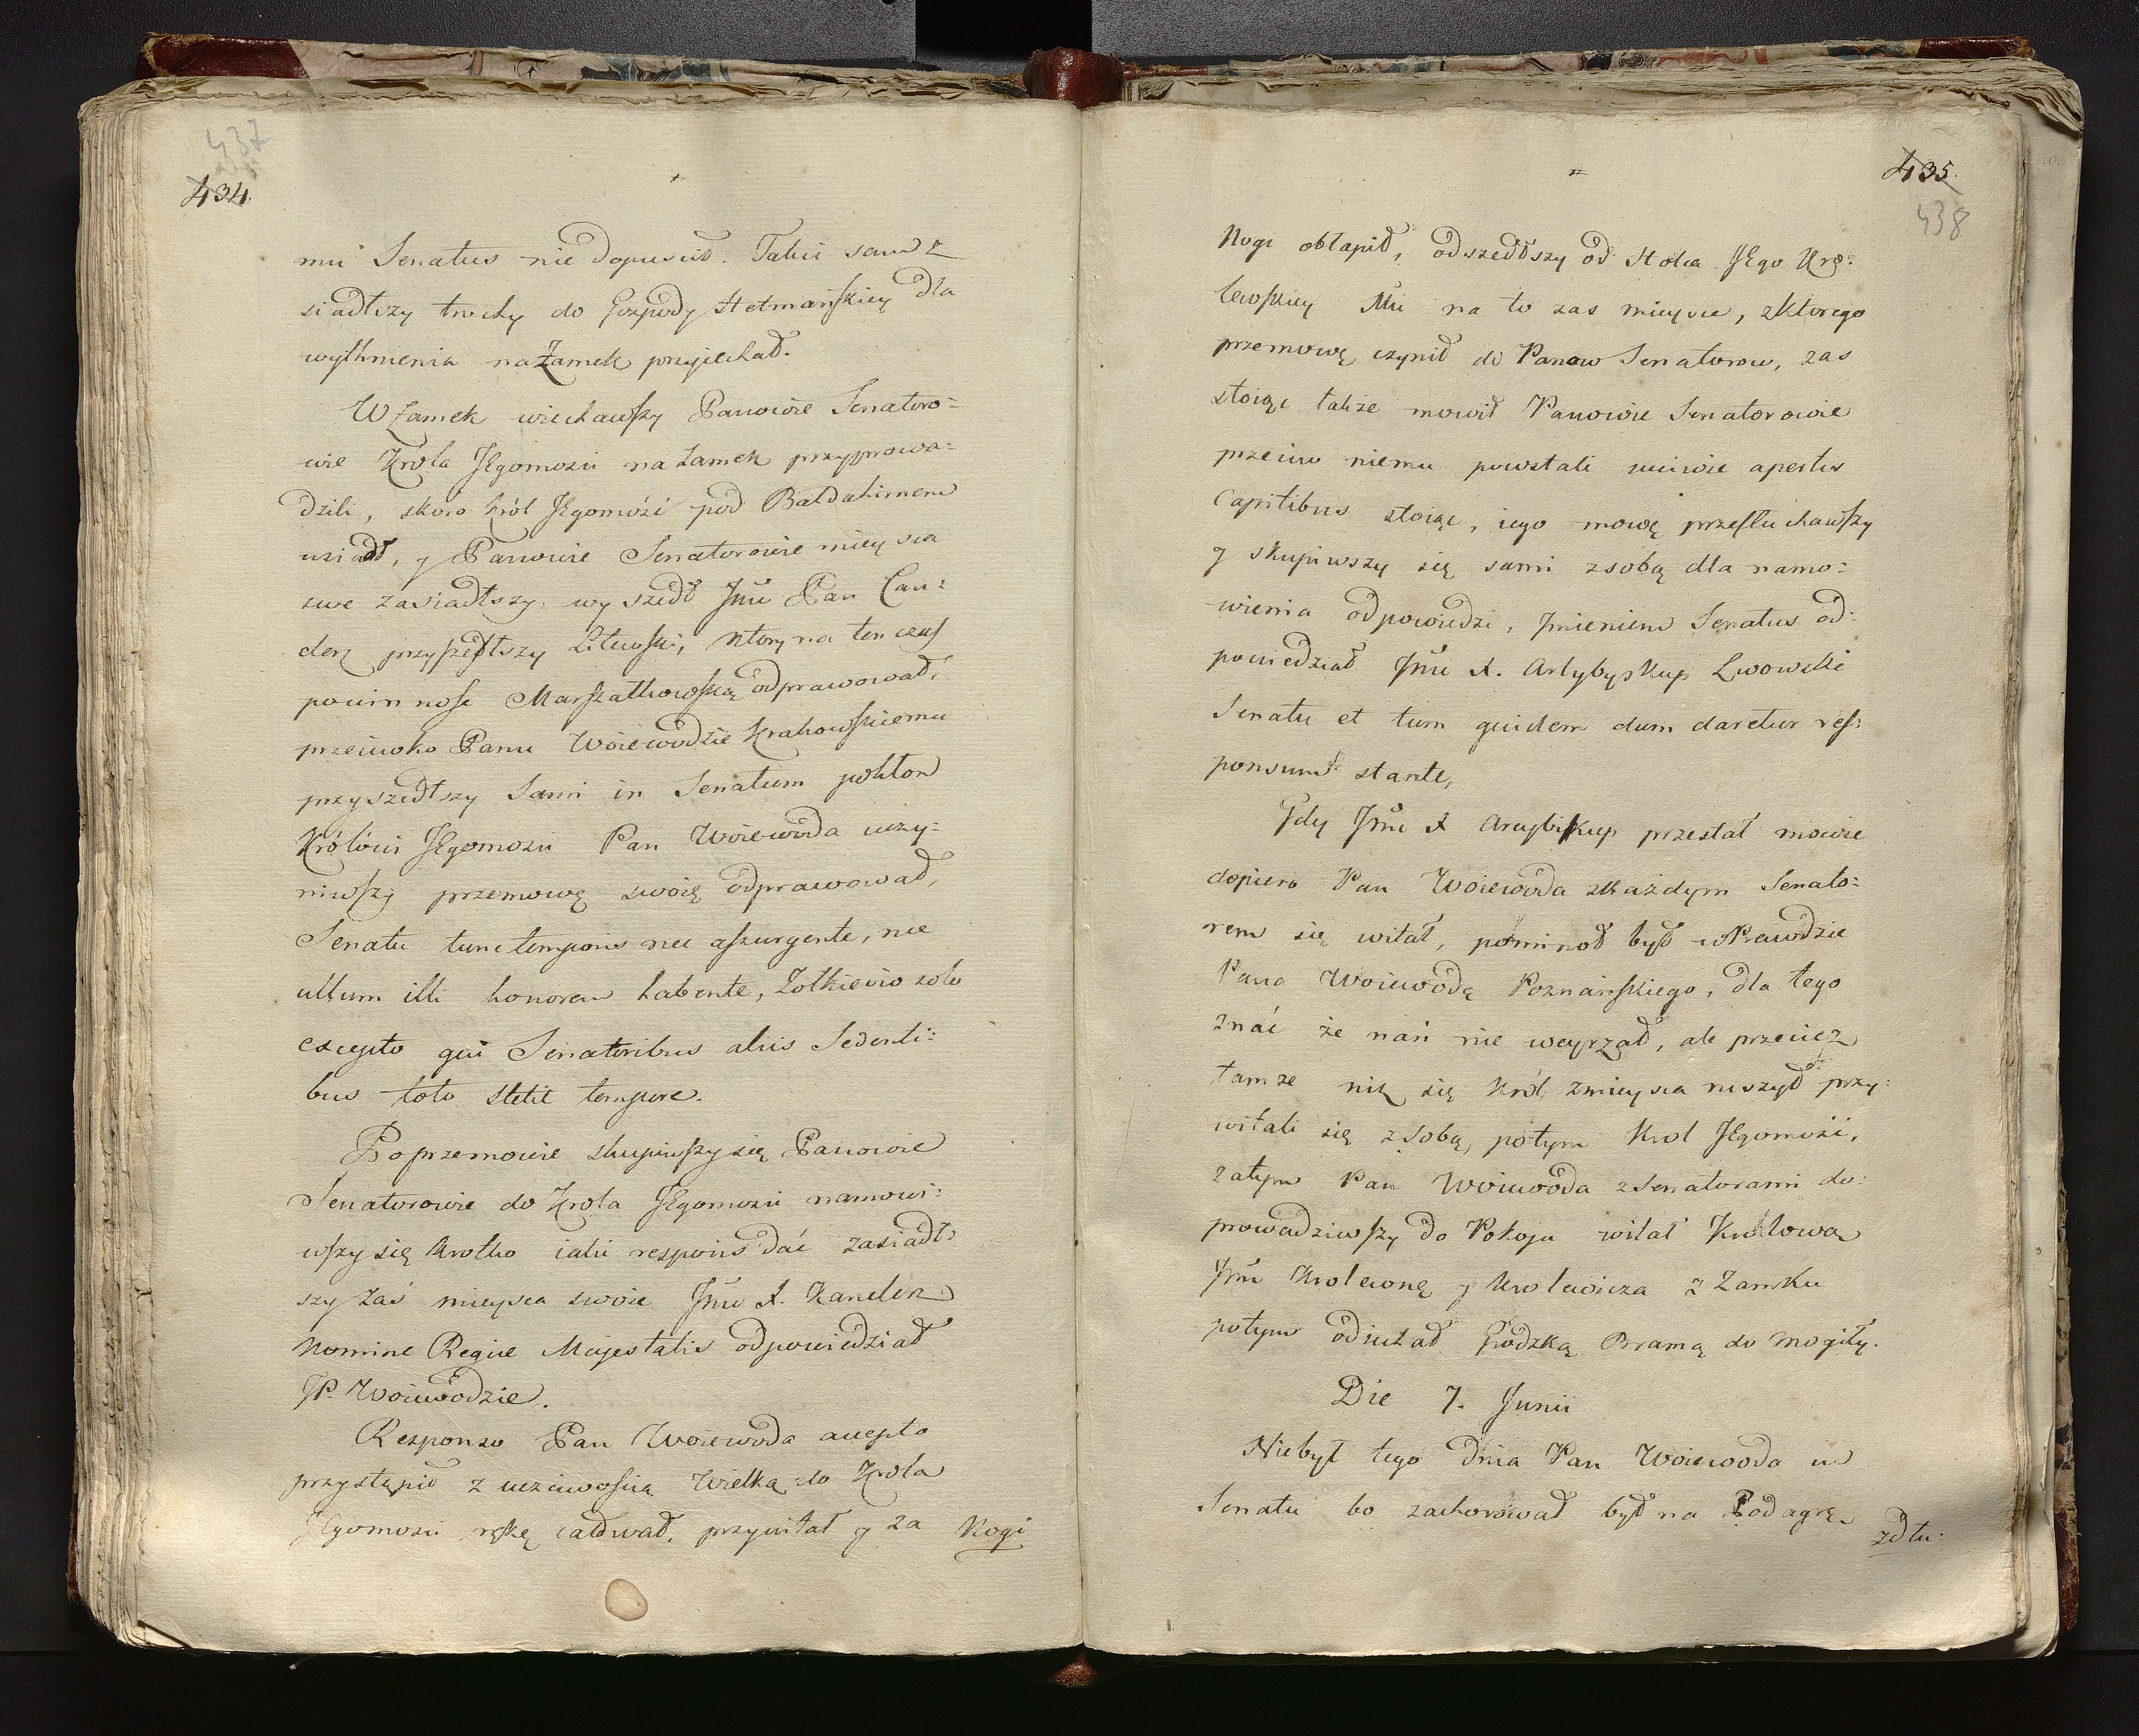 437
434.
mu Senatus nie dopuścił. Takci sam z
siadłszy trochy do Gospody Hetmańskiey dla
wytchnienia na Zamek przyiechał.
W Zamek wiechawszy Panowie Senatoro=
wie Krola JEgomości na Zamek przyprowa=
dzili, skoro król JEgomość pod Baldakimem
usiadł, y Panowie Senatorowie mieysca
swe zasiadłszy, wyszedł Jmć Pan Can=
clerz przyszedłszy Litewski, ktory na ten czas
powinnosc Marszałkowską odprawował,
przeciwko Panu Woiewodzie Krakowskiemu
przyszedłszy Sami in Senatum pokłon
Królowi JEgomości Pan Woiewoda uczy=
niwszy przemowę swoię odprawował,
Senatu tunc temporis nec assurgente, nec
ullum illi honorem habente, Zołkievio solo
excepto qui Senatoribus aliis Sedenti=
bus toto stetit tempore.
Po przemowie skupiwszy się Panowie
Senatorowie do Krola JEgomości namowi=
wszy się krotko iaki respons dać zasiadł=
szy zaś mieysca swoie Jmć X. Kanclerz
Nomine Regiae Majestatis odpowiedział
JP. Woiewodzie.
Responso Pan Woiewoda accepto
przystąpił z uczciwością wielką do Krola
JEgomości rękę całował, przywitał y za
Nogi
435.
438
Nogi obłapił, odszedłszy od stolca JEgo Kro=
lewskiey Mci na to zas mieysce, z ktorego
przemowę czynił do Panow Senatorow, zas
stoiąc także mowił Panowie Senatorowie
przeciw niemu powstali uczciwie apertis
Capitibus stoiąc, iego mowę przesłuchawszy
y skupiwszy się sami z sobą dla namo=
wienia odpowiedzi, Jmieniem Senatus od=
powiedział Jmć X. Arcybyskup Lwowski
Senatu et tum quidem dum daretur res=
ponsum stante,
Gdy Jmć X Arcybiskup przestał mowic
dopiero Pan Woiewoda z każdym Senato=
rem się witał, pominoł był w Prawdzie
Pana Woiewodę Poznańskiego, dla tego
znać że nań nie weyrzał, ale przecięz
tamze niz się król z mieysca ruszył przy=
witali się z sobą, potym Krol JEgomość,
zatym Pan Woiewoda z Senatorami do=
prowadziwszy do Pokoju witał Krolową
Jmć Krolewnę y Krolewicza z Zamku
potym odiechał Grodzką Bramą do Mogiły.
Die 7. Junii
Niebył tego dnia Pan Woiewoda w
Senatu bo zachorował był na Podagrę
zdłu=